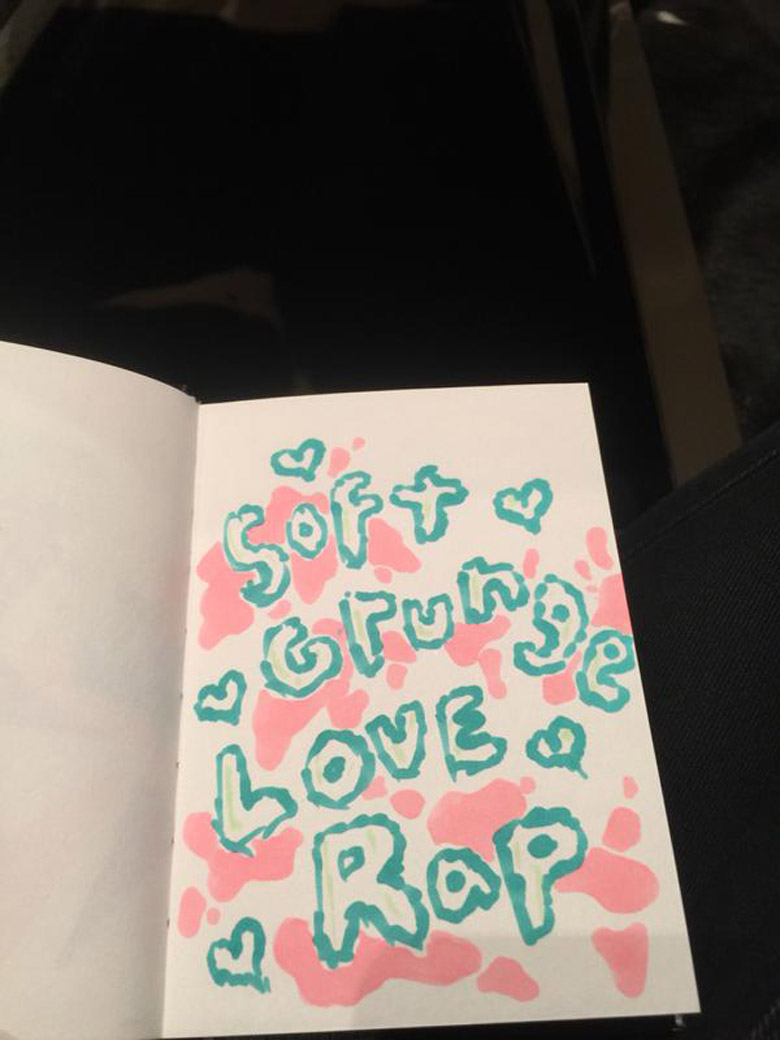 Soft
Grunge
LOVE
RaP